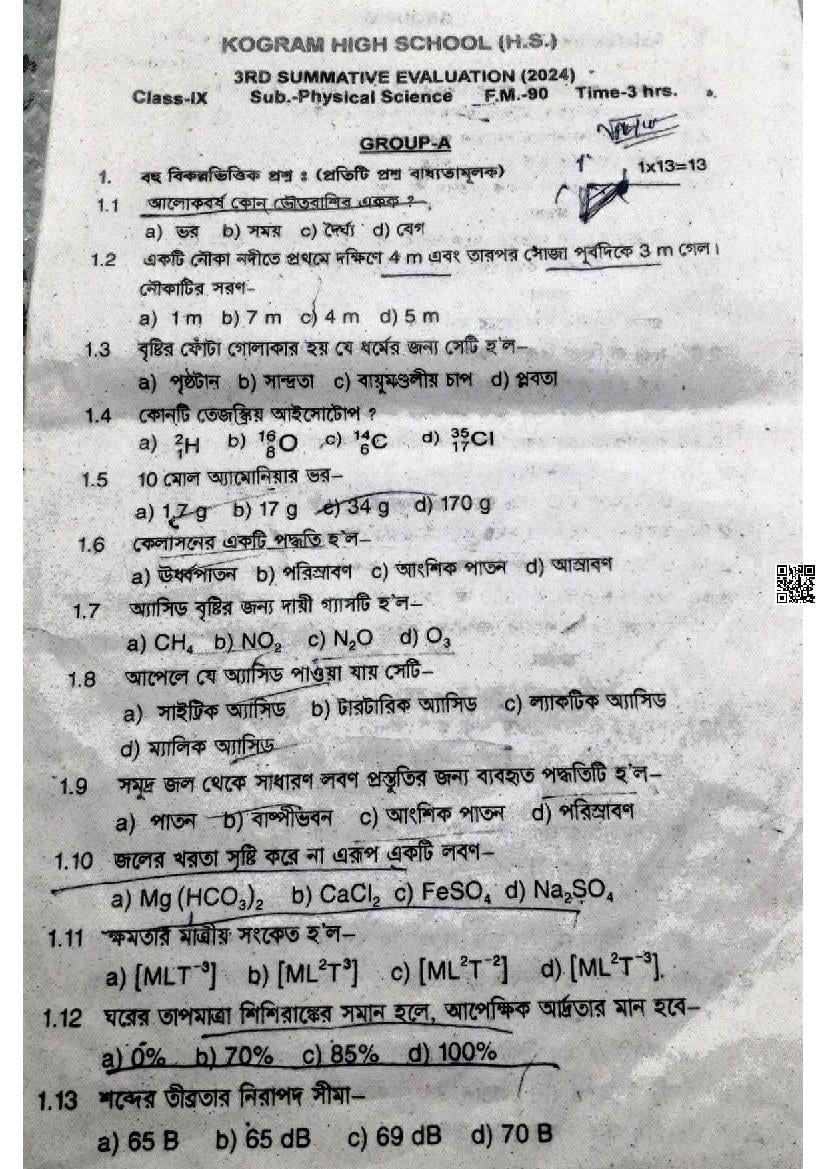 KOGRAM HIGH SCHOOL (H.S.)
3RD SUMMATIVE EVALUATION (2024)
Class-IX Sub.-Physical Science F.M.-90 Time-3 hrs.
GROUP-A
1. বহু বিকল্পভিত্তিক প্রশ্ন ঃ (প্রতিটি প্রশ্ন বাধ্যতামূলক) 1x13=13
1.1 আলোকবর্ষ কোন্ ভৌতরাশির একক ?
a) ভর b) সময় c) দৈর্ঘ্য d) বেগ
1.2 একটি নৌকা নদীতে প্রথমে দক্ষিণে 4 m এবং তারপর সোজা পূর্বদিকে 3 m গেল।
নৌকাটির সরণ–
a) 1 m b) 7 m c) 4 m d) 5 m
1.3 বৃষ্টির ফোঁটা গোলাকার হয় যে ধর্মের জন্য সেটি হ'ল–
a) পৃষ্ঠটান b) সান্দ্রতা c) বায়ুমণ্ডলীয় চাপ d) প্লবতা
1.4 কোনটি তেজস্ক্রিয় আইসোটোপ ?
a) ²₁H b) ¹⁶₈O c) ¹⁴₆C d) ³⁵₁₇Cl
1.5 10 মোল অ্যামোনিয়ার ভর–
a) 1.7 g b) 17 g c) 34 g d) 170 g
1.6 কেলাসনের একটি পদ্ধতি হ'ল–
a) উর্ধ্বপাতন b) পরিস্রাবণ c) আংশিক পাতন d) আস্রাবণ
1.7 অ্যাসিড বৃষ্টির জন্য দায়ী গ্যাসটি হ'ল–
a) CH₄ b) NO₂ c) N₂O d) O₃
1.8 আপেলে যে অ্যাসিড পাওয়া যায় সেটি–
a) সাইট্রিক অ্যাসিড b) টারটারিক অ্যাসিড c) ল্যাকটিক অ্যাসিড
d) ম্যালিক অ্যাসিড
1.9 সমুদ্র জল থেকে সাধারণ লবণ প্রস্তুতির জন্য ব্যবহৃত পদ্ধতিটি হ'ল–
a) পাতন b) বাষ্পীভবন c) আংশিক পাতন d) পরিস্রাবণ
1.10 জলের খরতা সৃষ্টি করে না এরূপ একটি লবণ–
a) Mg (HCO₃)₂ b) CaCl₂ c) FeSO₄ d) Na₂SO₄
1.11 ক্ষমতার মাত্রীয় সংকেত হ'ল–
a) [MLT⁻³] b) [ML²T³] c) [ML²T⁻²] d) [ML²T⁻³].
1.12 ঘরের তাপমাত্রা শিশিরাঙ্কের সমান হলে, আপেক্ষিক আর্দ্রতার মান হবে–
a) 0% b) 70% c) 85% d) 100%
1.13 শব্দের তীব্রতার নিরাপদ সীমা–
a) 65 B b) 65 dB c) 69 dB d) 70 B